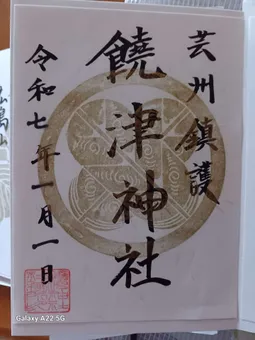 芸州鎮護
饒津神社
令和七年一月一日
Galaxy A22 5G